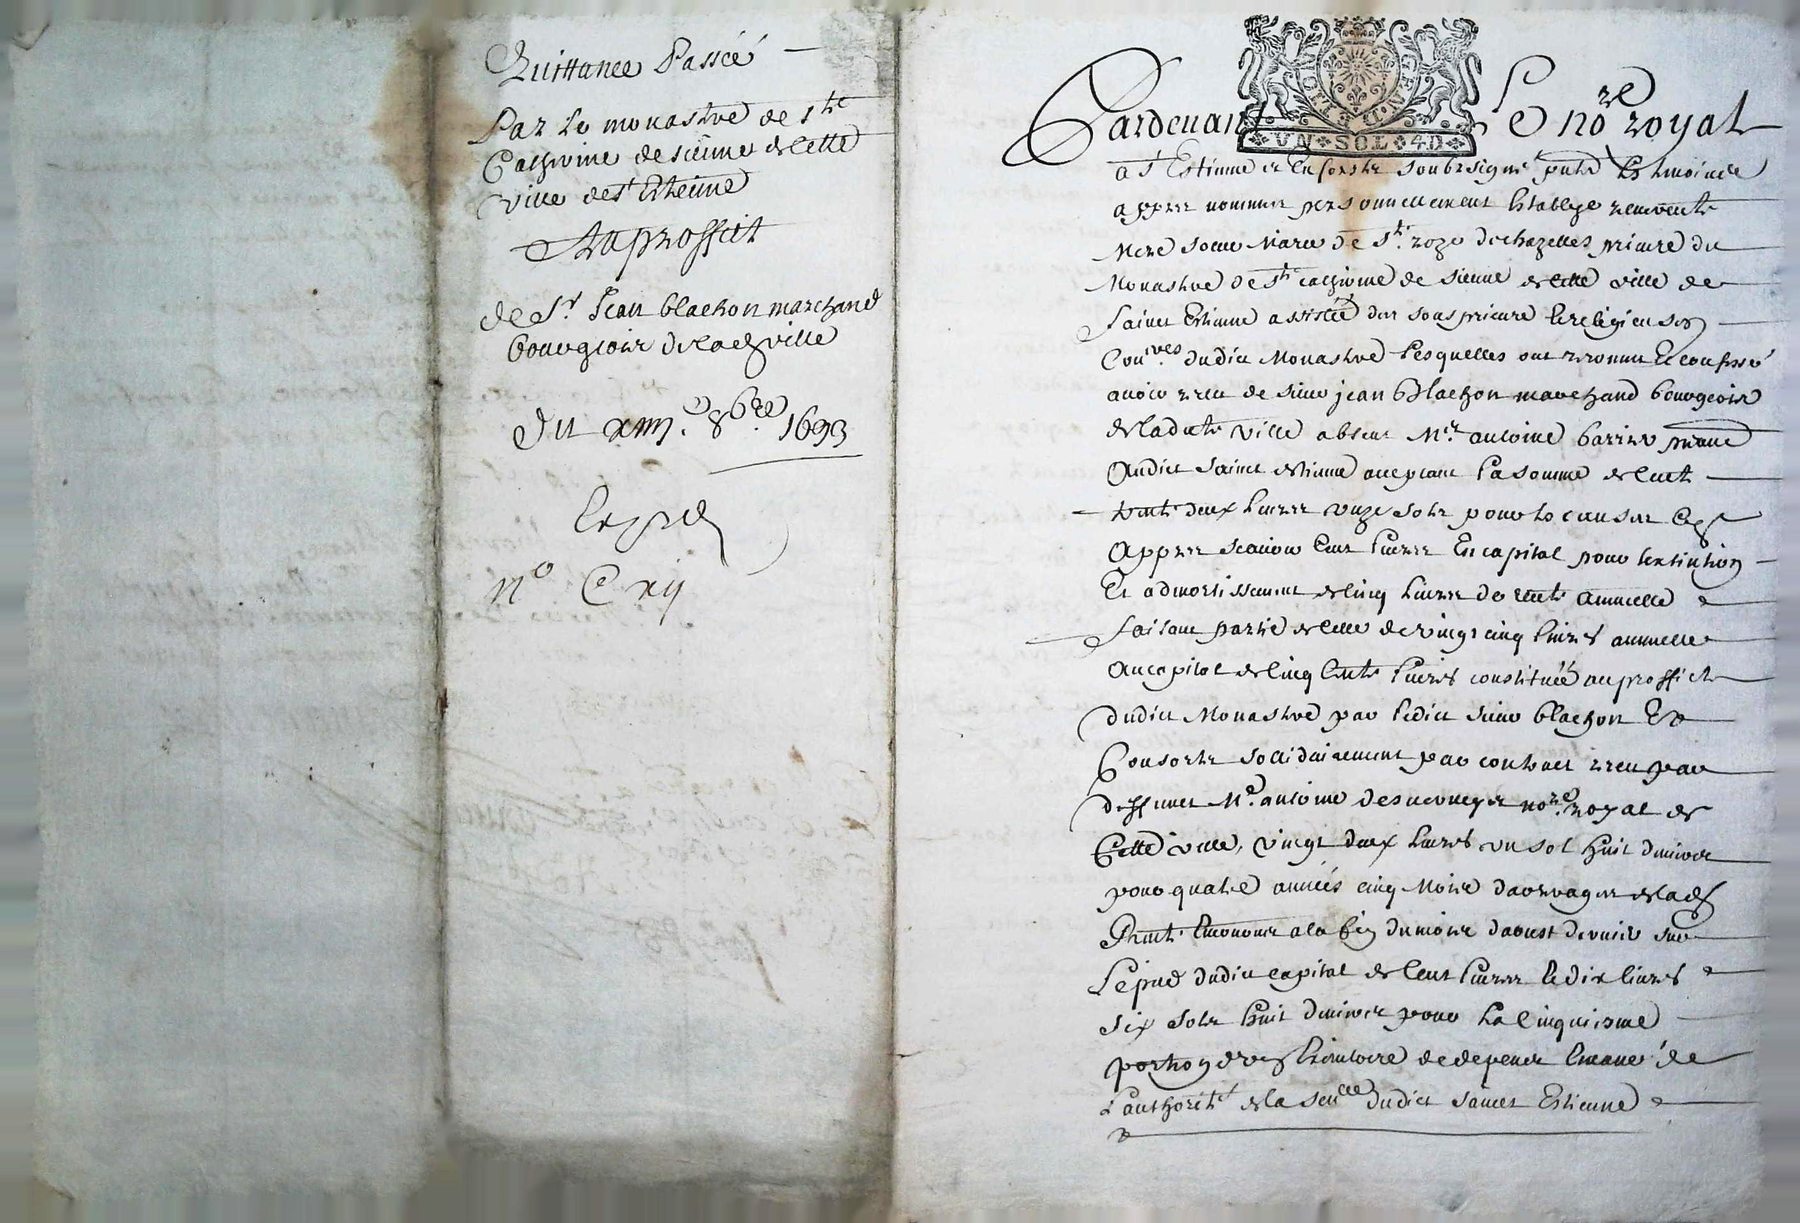 Quittance Passée
Par Le monastre de Ste
Catherine de sienne de Cette
ville de St Etienne
Au proffict
de Sr Jean blachon marchand
bourgeois de ladt ville
Du xiiii.e 8bre 1693
No C xij
Pardevant Le nore royal
UN · SOL · 4D
a St Estienne en forestz soubzsigné
appres nommes personnellement establye reverente
Mere soeur Marie de Ste roze de chazelles prieure du
Monastre de Ste catherine de sienne de cette ville de
Sainct Estienne assistée des sousprieure et religieuses
Conves dudict Monastre Lesquelles ont reconnu et confessé
avoir receu de sieur jean blachon marchand bourgeois
de ladicte ville absent Mre antoine
audict sainct estienne acceptant La somme de Cent
trente deux livres unze solz pour les causes cy
appres scavoir Cent livres en capital pour lextinction
Et admortissement de cinq livres de rente annuelle
faisant partie de celle de vingt cinq livres annuelle
au capital de cinq Cents livres constituée au proffict
dudict Monastre par ledict sieur blachon Et
Consortz sollidairement par contract receu par
deffunct Me antoine desverneys nore royal de
Cette ville, vingt deux livres un sol huit deniers
pour quatre années cinq Mois darrerages de lad
Rente a la fin du mois daoust dernier sur
Le pied dudict capital de Cent livres et dix livres
six solz huit deniers pour La cinquiesme
portion de depens de
L'authorité de la dudict sainct Estienne